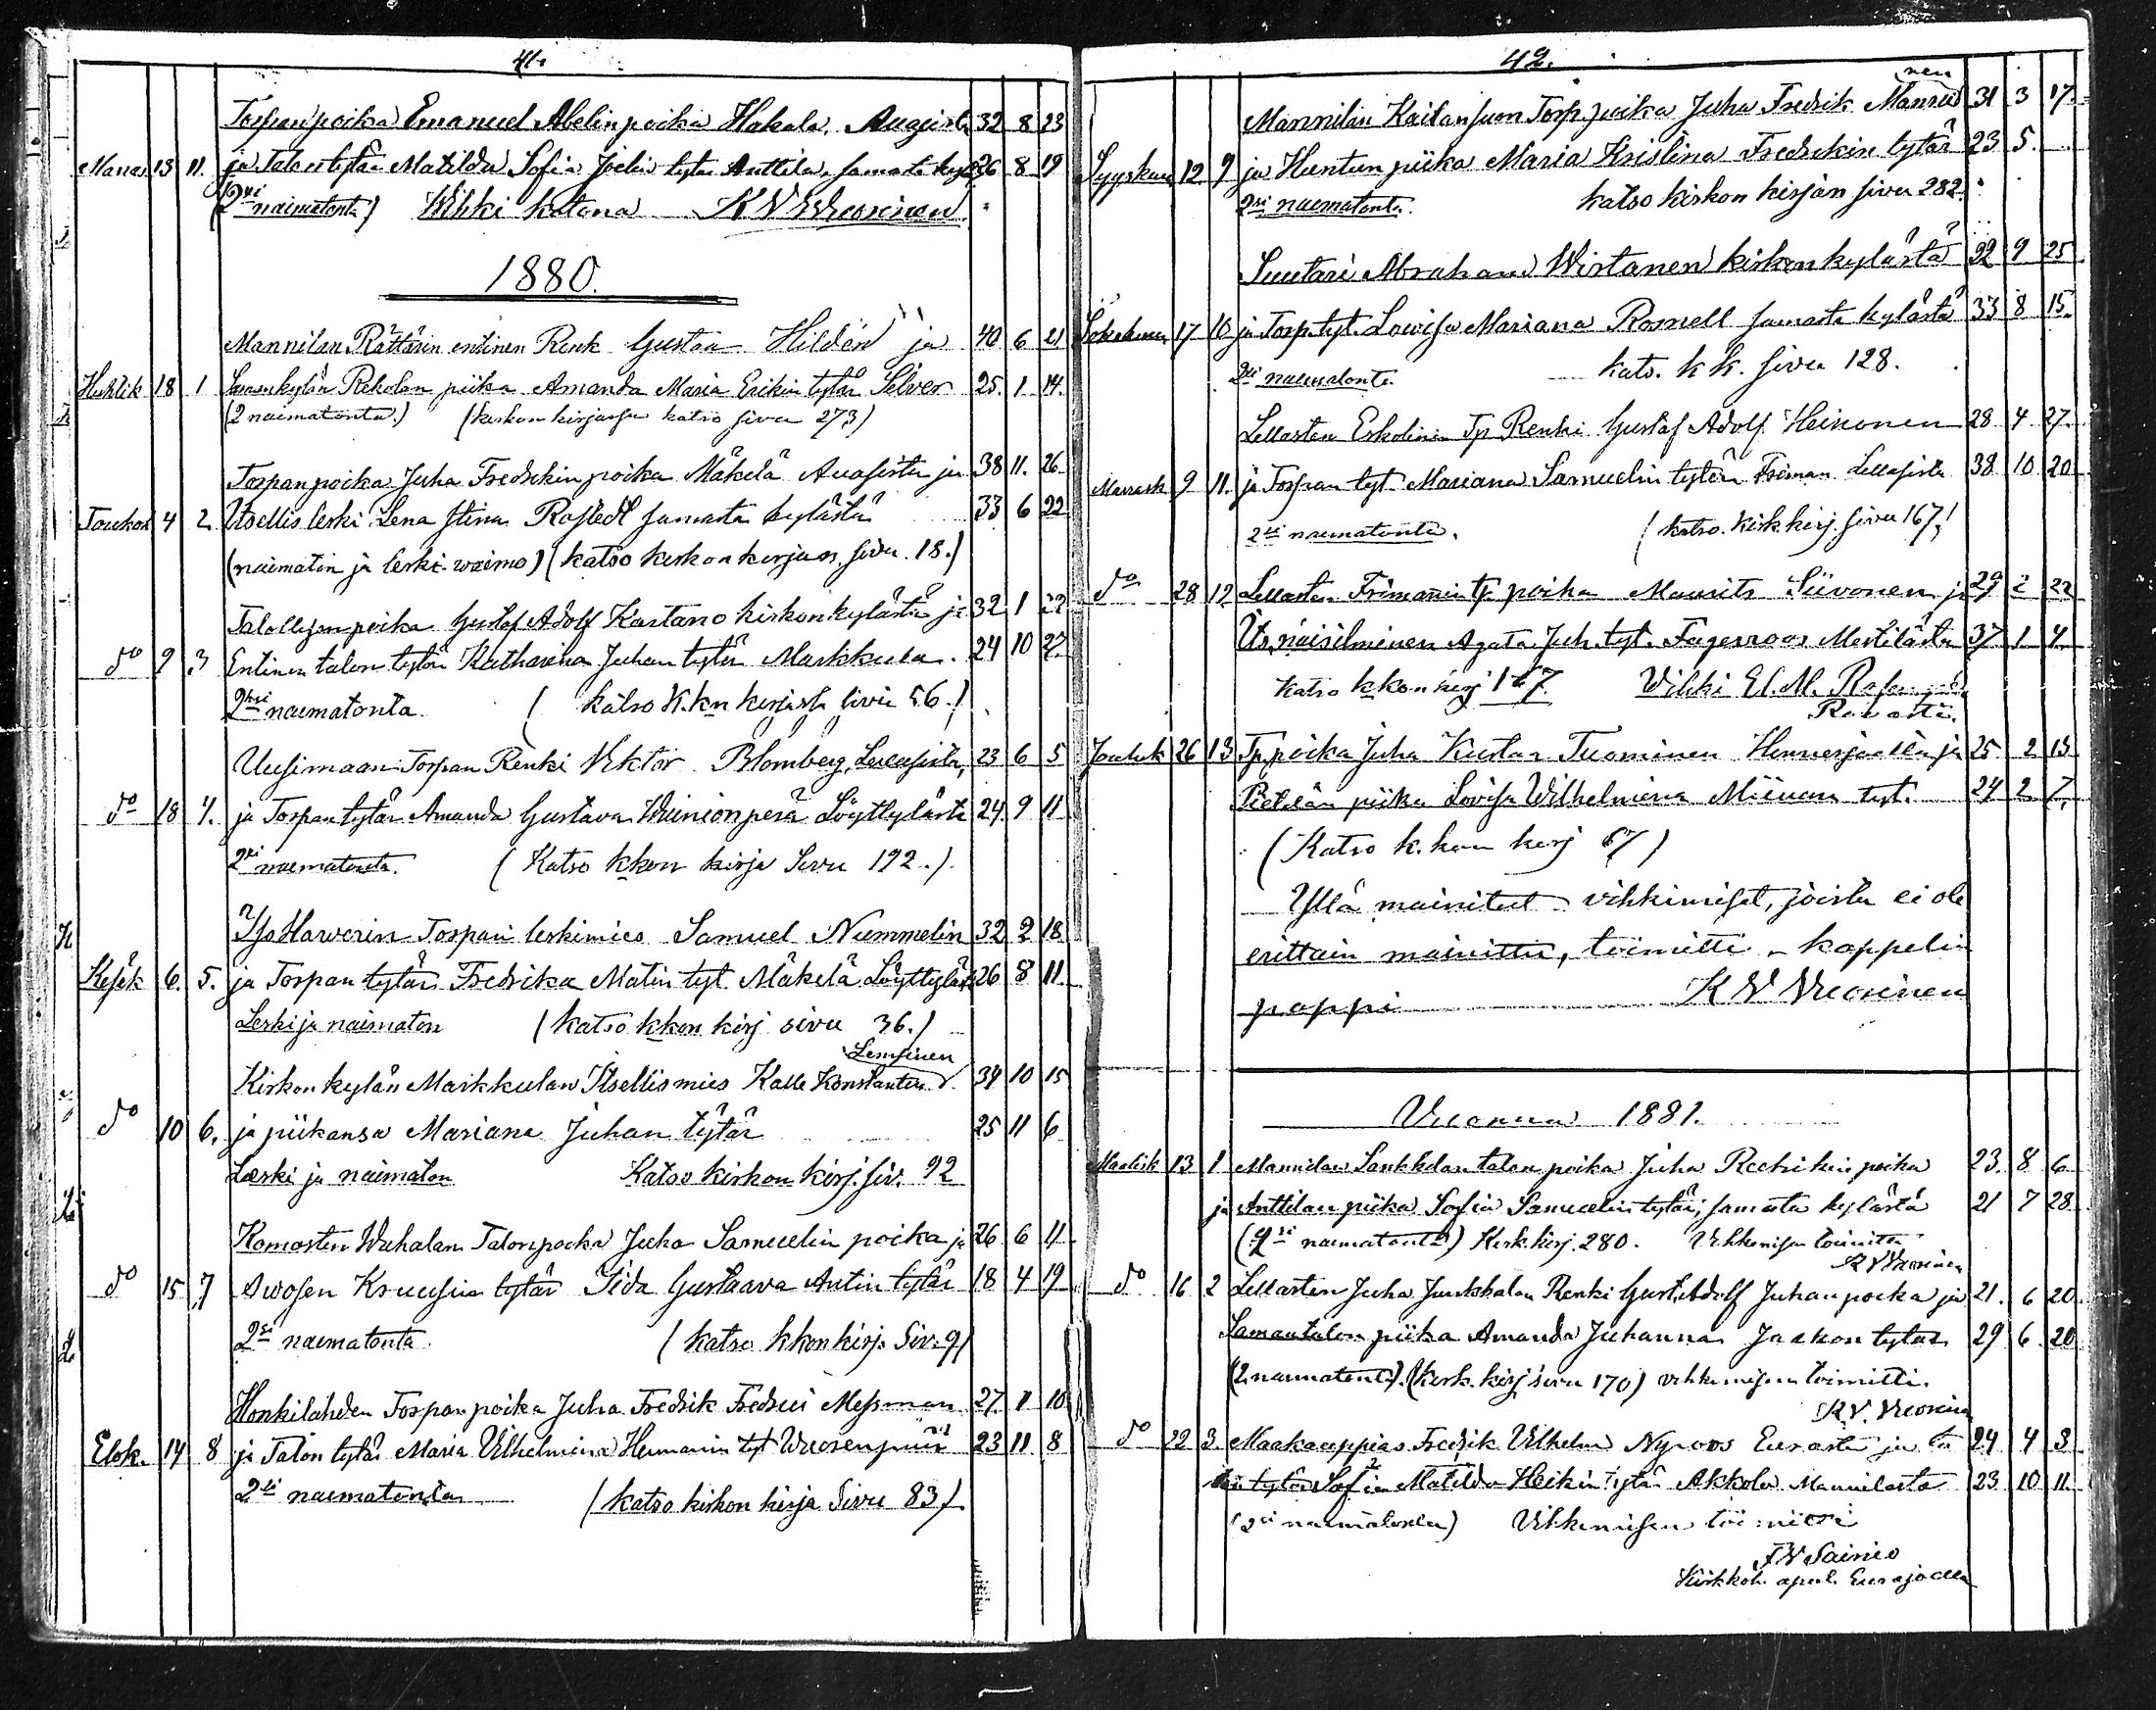 41.
Torpan poika Emanuel Abelin poika Hakala, 32 8 23
Marras 13 11. ja Talon tytär Matilda Sofia Joelin tytär Anttila, samasta kyl 26 8 19
(2si naimatonta) Wihki kotona K W Wuorinen
1880.
Mannilan Rättärin entinen Renk Gustaa Hildén ja 40 6 21
Huhtik 18 1 Rekolan piika Amanda Maria Erikin tytär Silver 25. 1 14.
(2 naimatonta.) (kirkon kirjassa katso sivu 273)
Torpan poika Juha Fredrikin poika Mäkelä ja 38 11. 26
Toukok 4 2. Itsellis leski Lena Stina Rostedt samasta kylästä 33 6 22
(naimatin ja leski waimo) (katso kirkon kirjaan sivu 18.)
Talollisen poika Gustaf Adolf Kastano kirkonkylästä ja 32 1 22
do 9 3 Entinen talon tytär Katharina Juhan tytär Markkula. 24 10 27
2si naimatonta ( katso K.kn kirjasta sivu 56.)
Uusimaan Torpan Renki Viktor Blomberg, 23 6 5
do 18 4. ja Torpan tytär Amanda Gustava Wäinionperä Löyttylästä 24 9 11
2si naimatonta. ( Katso kkon kirja Sivu 192.)
Torpan leskimies Samuel Nummelin 32 2 18
Kesäk 6. 5. ja Torpan tytär Fredrika Matin tyt Mäkelä Löyttyläst 26 8 11.
Leski ja naimaton ( katso kkon kirj sivu 36.)
Lempinen
Kirkon kylän Markkulan Itsellis mies Kalle Konstantin 34 10 15
do 10 6. ja piikansa Mariana Juhan tytär 25 11 6
Leski ja naimaton Katso kirkon kirj. siv. 92
Komosten Wähalan Talonpoika Juha Samuelin poika ja 26 6 11
do 15 7 tytär Iida Gustaava Antin tytär 18 4 19
2si naimatonta ( katso kkon kirj. Siv. 9)
Honkilahden Torpan poika Juha Fredrik Messman 27. 11 10
Elok. 14 8 ja Talon tytär Maria Vilhelmina Hermanin tyt Wuorenpää 23 11. 8
2si naimatonta (katso kirkon kirja Sivu 83)
42.
nen
Mannilan Torp. poika Juha Fredrik 31 3 17.
Syyskuu 12 9 ja Huntun piika Maria Kristina Fredrikin tytär 23 5.
2si naimatonta. katso kirkon kirjan sivu 282.
Suutari Abraham Wirtanen kirkonkylästä 22 9 25
Lokakuu 17 10 ja Torp. tyt. Lowisa Mariana Rosnell samasta kylästä 33 8 15.
2si naimatonta. kats. k k. sivu 128.
Lellasten Eskolinin Tp Renki Gustaf Adolf Heinonen 28 4 27.
Marrask 9 11. ja Torpan tyt. Mariana Samuelin tytär Friman 38 10 20
2si naimatonta. (katso. kirk. kirj. sivu 167.)
do 28 12 Lellasten tp. poika Maurits Siivonen ja 29 2 22
Its. naisihminen Agata Juh. tyt. Fagerroos Mestilästä 37 1 4.
katso kkon kirj 167. Vihki
Jouluk 26 13 Tp. poika Juha Kustaa Tuominen ja 25 2 13
Pietilän piika Lovisa Wilhelmina tyt. 24 2 7.
(Katso k. kon kirj 67)
Yllä mainitut vihkimiset, joista ei ole
erittäin mainittu, toimitti - kappelin
pappi K W Wuorinen
Vuonna 1881.
Maalisk 13 1 Mannilan talon poika Juha poika 23. 8 6
ja Anttilan piika Sofia Samuelin tytär, samasta kylästä 21 7 28
(2si naimatonta) Kirk. kirj. 280. Vihkimisen toimitti
K V Wuorinen
do 16 2 Lellasten Juha Junkkalan Renki Gust. Adolf Juhan poika ja 21. 6 20.
Saman talon piika Amanda Juhanna Jaakon tytär 29 6 20
(2 naimatonta). (Kirk. kirj sivu 170) vihkimisen toimitti.
K. V. Wuorinen
do 22 3. Maakauppias Fredrik Vilhelm Nyroos Eurasta ja ta 24 4 3
tytär Sofia Matilda Heikin tytär Akkola Mannilasta 23 10 11.
(2si naimatonta) Vihkimisen toimitti
F W Sainio
Kirkkoh. apul. Eurajoella